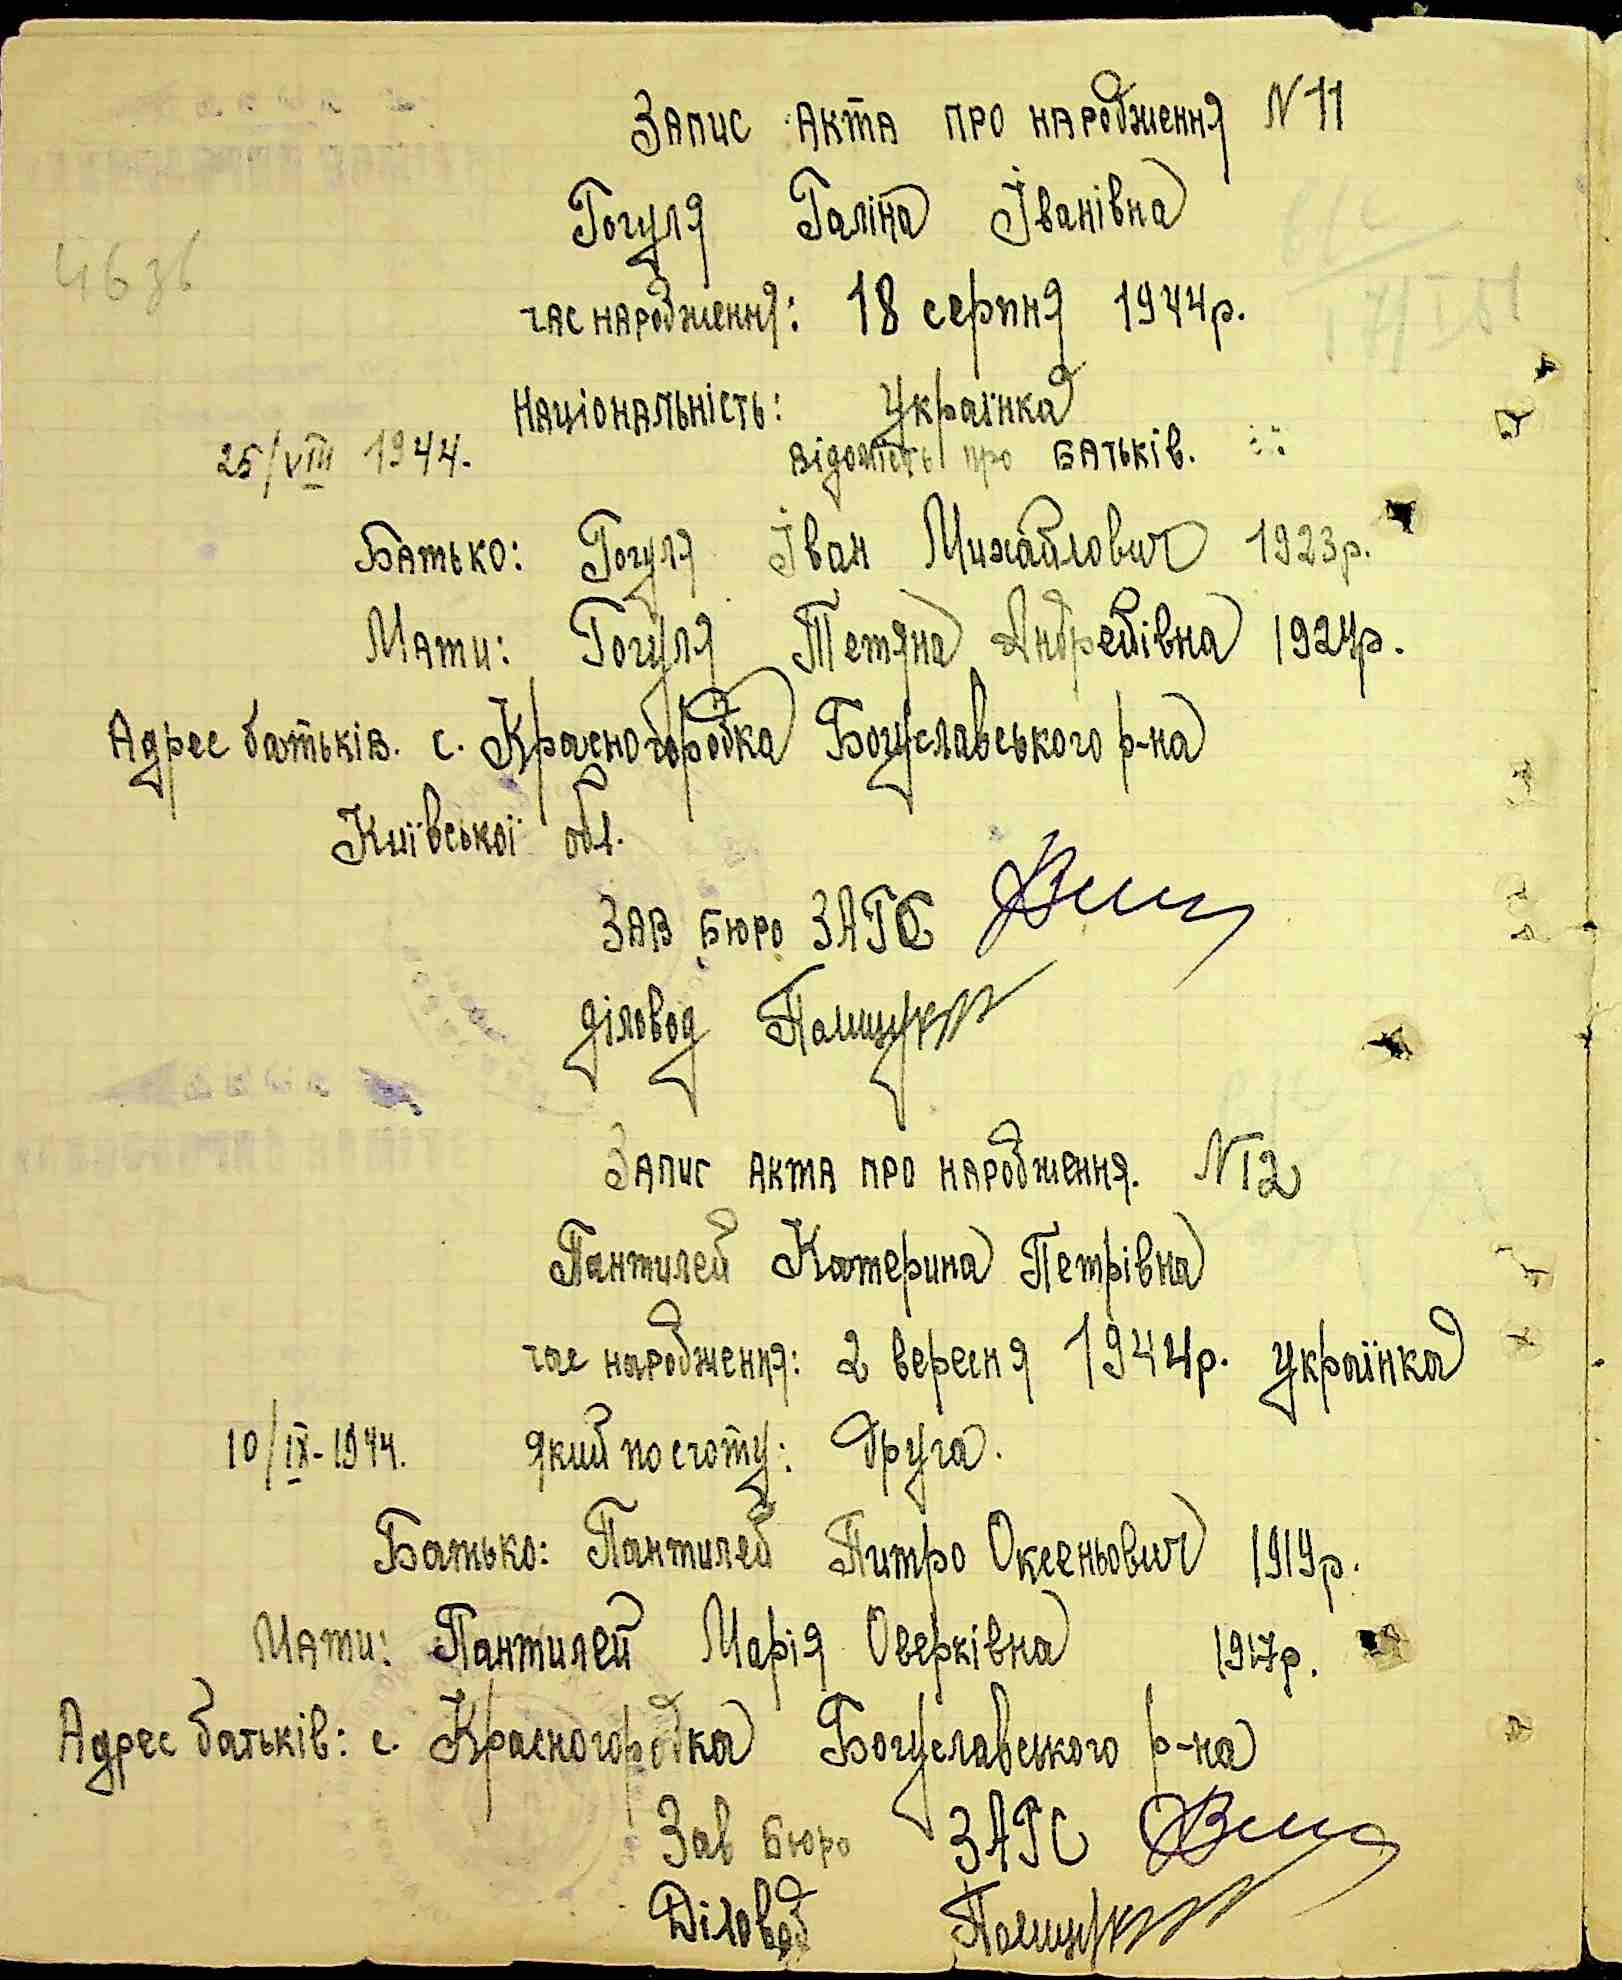 Запис акта про народження N 11
Гогуля Галіна Іванівна
час народження: 18 серпня 1944р.
Національність: українка
25/VIII 1944. відомість про батьків.
Батько: Гогуля Іван Михайлович 1923р.
Мати: Гогуля Тетяна Андреївна 1924р.
Адрес батьків. с. Красногородка Богуславського р-на
Київської обл.
Зав бюро ЗАГС
діловод
Запис акта про народження. N 12
Пантилей Катерина Петрівна
час народження: 2 вересня 1944р. українка
10/IX-1944. який по счоту: друга.
Батько: Пантилей Питро Оксеньович 1919р.
Мати: Пантилей Марія Оверківна 1917р.
Адрес батьків: с. Красногородка Богуславського р-на
Зав бюро ЗАГС
Діловод